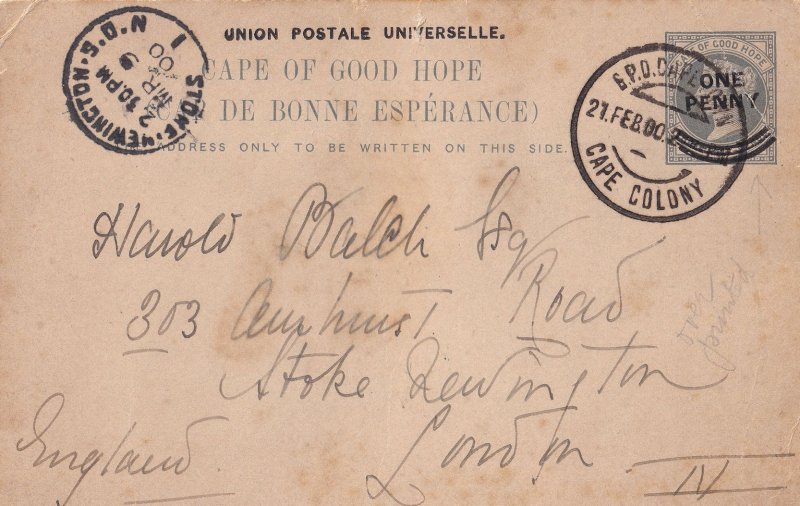 UNION POSTALE UNIVERSELLE.
CAPE OF GOOD HOPE
DE BONNE ESPÉRANCE)
ADDRESS ONLY TO BE WRITTEN ON THIS SIDE.
STOKE-NEWINGTON·N.D.O.
2 30.PM
MR 9
00
1
G.P.O. CAPE TOWN
21.FEB.00.
CAPE COLONY
OF GOOD HOPE
ONE
PENNY
Harold Balch Esq
303 Amhurst Road
Stoke Newington
London
N
England
over
printed